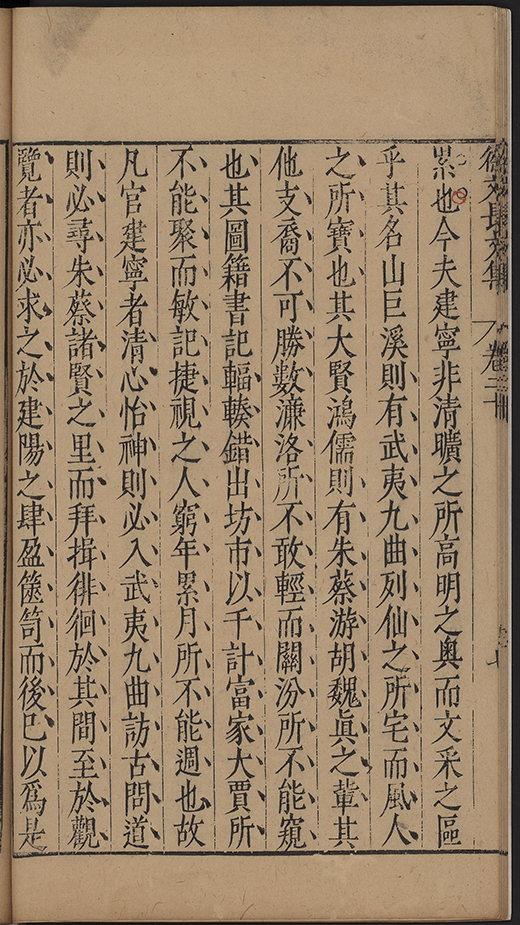 累也今夫建寧非清曠之所高明之奧而文采之區
乎其名山巨溪則有武夷九曲列仙之所宅而風人
之所寶也其大賢鴻儒則有朱蔡游胡魏眞之輩其
他支裔不可勝數濂洛所不敢輕而關汾所不能窺
也其圖籍書記輻輳錯出坊市以千計富家大賈所
不能聚而敏記捷視之人窮年累月所不能週也故
凡官建寧者清心怡神則必入武夷九曲訪古問道
則必尋朱蔡諸賢之里而拜揖徘徊於其間至於觀
覽者亦必求之於建陽之肆盈篋笥而後已以爲是